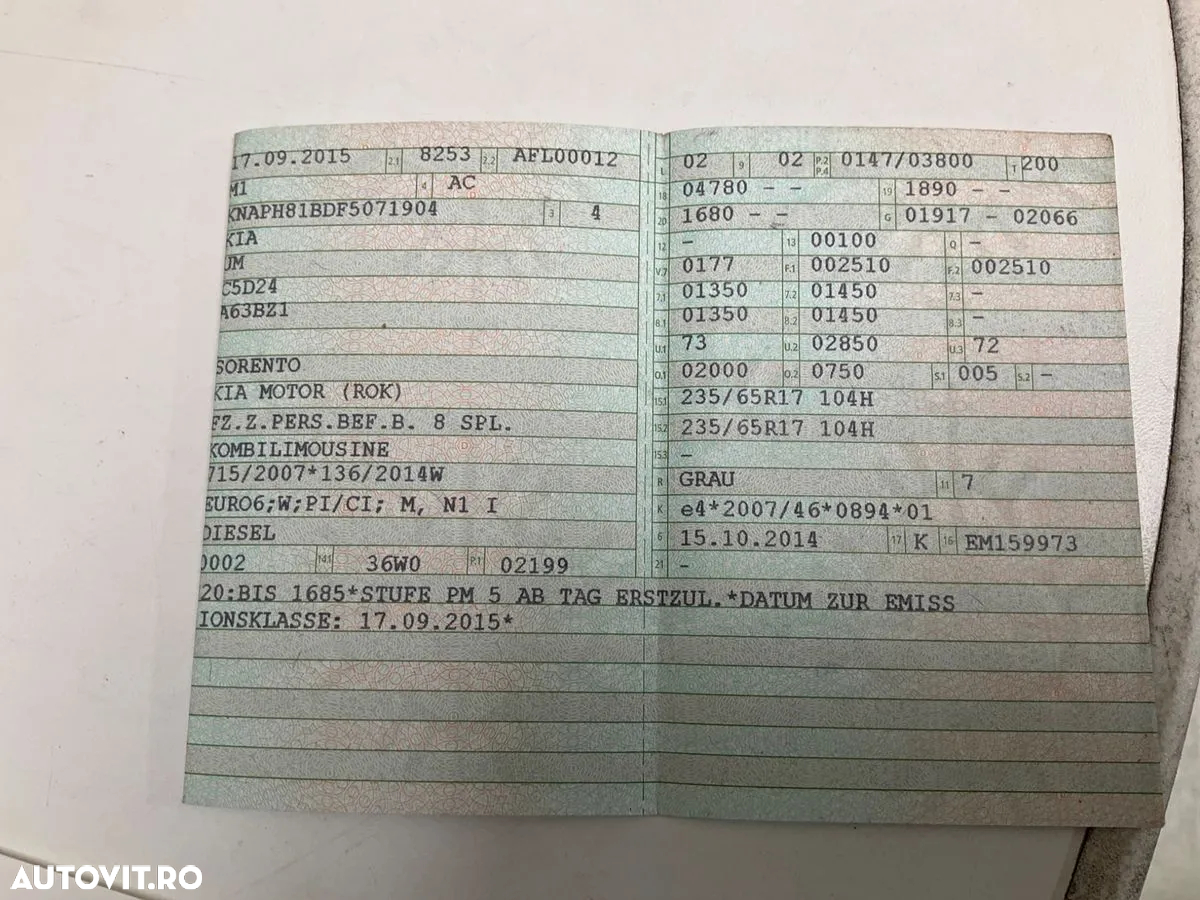 17.09.2015 2.1 8253 2.2 AFL00012
M1 4 AC
KNAPH81BDF5071904 3 4
KIA
UM
C5D24
A63BZ1
SORENTO
KIA MOTOR (ROK)
FZ.Z.PERS.BEF.B. 8 SPL.
KOMBILIMOUSINE
715/2007*136/2014W
EURO6;W;PI/CI; M, N1 I
DIESEL
0002 14.1 36W0 P.1 02199
L 02 9 02 P.2 P.4 0147/03800 T 200
18 04780 - - 19 1890 - -
20 1680 - - G 01917 - 02066
12 - 13 00100 Q -
V.7 0177 F.1 002510 F.2 002510
7.1 01350 7.2 01450 7.3 -
8.1 01350 8.2 01450 8.3 -
U.1 73 U.2 02850 U.3 72
O.1 02000 O.2 0750 S.1 005 S.2 -
15.1 235/65R17 104H
15.2 235/65R17 104H
15.3 -
R GRAU 11 7
K e4*2007/46*0894*01
6 15.10.2014 17 K 16 EM159973
21 -
20:BIS 1685*STUFE PM 5 AB TAG ERSTZUL.*DATUM ZUR EMISS
IONSKLASSE: 17.09.2015*
AUTOVIT.RO